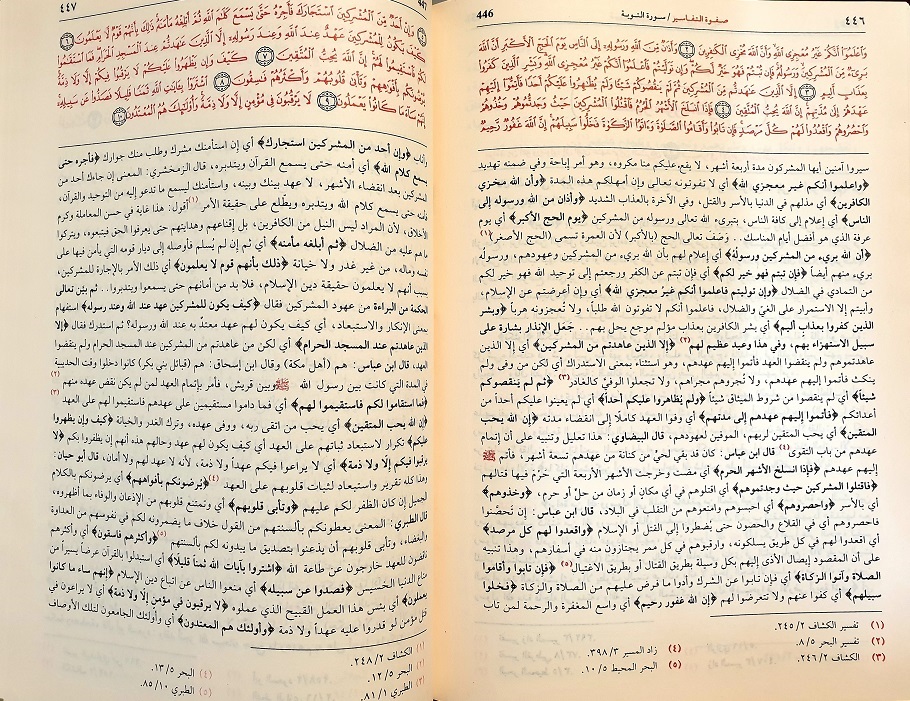 ٤٤٦
صفوة التفاسير / سورة التوبة
446
وَاعْلَمُوا أَنَّكُمْ غَيْرُ مُعْجِزِي اللَّهِ وَأَنَّ اللَّهَ مُخْزِي الْكَافِرِينَ ﴿٢﴾ وَأَذَانٌ مِّنَ اللَّهِ وَرَسُولِهِ إِلَى النَّاسِ يَوْمَ الْحَجِّ الْأَكْبَرِ أَنَّ اللَّهَ
بَرِيءٌ مِّنَ الْمُشْرِكِينَ وَرَسُولُهُ فَإِن تُبْتُمْ فَهُوَ خَيْرٌ لَّكُمْ وَإِن تَوَلَّيْتُمْ فَاعْلَمُوا أَنَّكُمْ غَيْرُ مُعْجِزِي اللَّهِ وَبَشِّرِ الَّذِينَ كَفَرُوا
بِعَذَابٍ أَلِيمٍ ﴿٣﴾ إِلَّا الَّذِينَ عَاهَدتُّم مِّنَ الْمُشْرِكِينَ ثُمَّ لَمْ يَنقُصُوكُمْ شَيْئًا وَلَمْ يُظَاهِرُوا عَلَيْكُمْ أَحَدًا فَأَتِمُّوا إِلَيْهِمْ
عَهْدَهُمْ إِلَى مُدَّتِهِمْ إِنَّ اللَّهَ يُحِبُّ الْمُتَّقِينَ ﴿٤﴾ فَإِذَا انسَلَخَ الْأَشْهُرُ الْحُرُمُ فَاقْتُلُوا الْمُشْرِكِينَ حَيْثُ وَجَدتُّمُوهُمْ وَخُذُوهُمْ
وَاحْصُرُوهُمْ وَاقْعُدُوا لَهُمْ كُلَّ مَرْصَدٍ فَإِن تَابُوا وَأَقَامُوا الصَّلَاةَ وَآتَوُا الزَّكَاةَ فَخَلُّوا سَبِيلَهُمْ إِنَّ اللَّهَ غَفُورٌ رَّحِيمٌ
سيروا آمنين أيها المشركون مدة أربعة أشهر، لا يقع عليكم منا مكروه، وهو أمر إباحة وفي ضمنه تهديد
﴿واعلموا أنكم غير معجزي الله﴾ أي لا تفوتونه تعالى وإن أمهلكم هذه المدة ﴿وأن الله مخزي
الكافرين﴾ أي مذلهم في الدنيا بالأسر والقتل، وفي الآخرة بالعذاب الشديد ﴿وأذان من الله ورسوله إلى
الناس﴾ أي إعلام إلى كافة الناس، بتبريء الله تعالى ورسوله من المشركين ﴿يوم الحج الأكبر﴾ أي يوم
عرفة الذي هو أفضل أيام المناسك.. وَصَف تعالى الحج (بالأكبر) لأن العمرة تسمى (الحج الأصغر)(١)
﴿أن الله بريء من المشركين ورسولُه﴾ أي إعلام لهم بأن الله بريء من المشركين وعهودهم، ورسولُه
بريء منهم أيضاً ﴿فإن تبتم فهو خير لكم﴾ أي فإن تبتم عن الكفر ورجعتم إلى توحيد الله فهو خير لكم
من التمادي في الضلال ﴿وإن توليتم فاعلموا أنكم غيرُ معجزي الله﴾ أي وإن أعرضتم عن الإسلام،
وأبيتم إلا الاستمرار على الغيّ والضلال، فاعلموا أنكم لا تفوتون الله طلباً، ولا تُعجزونه هرباً ﴿وبشر
الذين كفروا بعذاب أليم﴾ أي بشر الكافرين بعذاب مؤلم موجع يحل بهم.. جَعَل الإنذار بشارة على
سبيل الاستهزاء بهم، وفي هذا وعيد عظيم لهم(٢) ﴿إلا الذين عاهدتم من المشركين﴾ أي إلا الذين
عاهدتموهم ولم ينقضوا العهد فأتموا إليهم عهدهم، وهو استثناء بمعنى الاستدراك أي لكن من وفى ولم
ينكث فأتموا إليهم عهدهم، ولا تُجروهم مجراهم، ولا تجعلوا الوفيَّ كالغادر(٣) ﴿ثم لم ينقصوكم
شيئاً﴾ أي لم ينقصوا من شروط الميثاق شيئاً ﴿ولم يظاهروا عليكم أحداً﴾ أي لم يعينوا عليكم أحداً من
أعدائكم ﴿فأتموا إليهم عهدهم إلى مدتهم﴾ أي وفوا العهد كاملًا إلى انقضاء مدته ﴿إن الله يحب
المتقين﴾ أي يحب المتقين لربهم، الموفين لعهودهم، قال البيضاوي: هذا تعليل وتنبيه على أن إتمام
عهدهم من باب التقوى(٤) قال ابن عباس: كان قد بقي لحيّ من كنانة من عهدهم تسعة أشهر، فأتم ﷺ
إليهم عهدهم ﴿فإذا انسلخ الأشهر الحرم﴾ أي مضت وخرجت الأشهر الأربعة التي حَرَّم فيها قتالهم
﴿فاقتلوا المشركين حيث وجدتموهم﴾ أي اقتلوهم في أي مكانٍ أو زمان من حلّ أو حرم، ﴿وخذوهم﴾
أي بالأسر ﴿واحصروهم﴾ أي احبسوهم وامنعوهم من التقلب في البلاد، قال ابن عباس: إن تَحصَّنوا
فاحصروهم أي في القلاع والحصون حتى يُضطروا إلى القتل أو الإسلام ﴿واقعدوا لهم كل مرصد﴾
أي اقعدوا لهم في كل طريق يسلكونه، وارقبوهم في كل ممر يجتازون منه في أسفارهم، وهذا تنبيه
على أن المقصود إيصال الأذى إليهم بكل وسيلة بطريق القتال أو بطريق الاغتيال(٥) ﴿فإن تابوا وأقاموا
الصلاة وآتوا الزكاة﴾ أي فإن تابوا عن الشرك وأدوا ما فرض عليهم من الصلاة والزكاة ﴿فخلوا
سبيلهم﴾ أي كفوا عنهم ولا تتعرضوا لهم ﴿إن الله غفور رحيم﴾ أي واسع المغفرة والرحمة لمن تاب
(١) تفسير الكشاف ٢/ ٢٤٥.
(٢) تفسير البحر ٥/ ٨.
(٣) الكشاف ٢/ ٢٤٦.
(٤) زاد المسير ٣/ ٣٩٨.
(٥) البحر المحيط ٥/ ١٠.
٤٤٧
وَإِنْ أَحَدٌ مِّنَ الْمُشْرِكِينَ اسْتَجَارَكَ فَأَجِرْهُ حَتَّى يَسْمَعَ كَلَامَ اللَّهِ ثُمَّ أَبْلِغْهُ مَأْمَنَهُ ذَلِكَ بِأَنَّهُمْ قَوْمٌ لَّا يَعْلَمُونَ ﴿٦﴾
كَيْفَ يَكُونُ لِلْمُشْرِكِينَ عَهْدٌ عِندَ اللَّهِ وَعِندَ رَسُولِهِ إِلَّا الَّذِينَ عَاهَدتُّمْ عِندَ الْمَسْجِدِ الْحَرَامِ فَمَا اسْتَقَامُوا
لَكُمْ فَاسْتَقِيمُوا لَهُمْ إِنَّ اللَّهَ يُحِبُّ الْمُتَّقِينَ ﴿٧﴾ كَيْفَ وَإِن يَظْهَرُوا عَلَيْكُمْ لَا يَرْقُبُوا فِيكُمْ إِلًّا وَلَا ذِمَّةً
يُرْضُونَكُم بِأَفْوَاهِهِمْ وَتَأْبَى قُلُوبُهُمْ وَأَكْثَرُهُمْ فَاسِقُونَ ﴿٨﴾ اشْتَرَوْا بِآيَاتِ اللَّهِ ثَمَنًا قَلِيلًا فَصَدُّوا عَن سَبِيلِهِ
إِنَّهُمْ سَاءَ مَا كَانُوا يَعْمَلُونَ ﴿٩﴾ لَا يَرْقُبُونَ فِي مُؤْمِنٍ إِلًّا وَلَا ذِمَّةً وَأُولَئِكَ هُمُ الْمُعْتَدُونَ ﴿١٠﴾
وأناب ﴿وإن أحد من المشركين استجارك﴾ أي إن استأمنك مشرك وطلب منك جوارك ﴿فأجره حتى
يسمع كلام الله﴾ أي أمنه حتى يسمع القرآن ويتدبره، قال الزمخشري: المعنى إن جاءك أحد من
المشركين بعد انقضاء الأشهر، لا عهد بينك وبينه، واستأمنك ليسمع ما تدعو إليه من التوحيد والقرآن،
فأمنه حتى يسمع كلام الله ويتدبره ويطّلع على حقيقة الأمر(١) أقول: هذا غاية في حسن المعاملة وكرم
الأخلاق، لأن المراد ليس النيل من الكافرين، بل إقناعهم وهدايتهم حتى يعرفوا الحق فيتبعوه، ويتركوا
ما هم عليه من الضلال ﴿ثم أبلغه مأمنه﴾ أي ثم إن لم يُسلم فأوصله إلى ديار قومه التي يأمن فيها على
نفسه وماله، من غير غدر ولا خيانة ﴿ذلك بأنهم قوم لا يعلمون﴾ أي ذلك الأمر بالإجارة للمشركين،
بسبب أنهم لا يعلمون حقيقة دين الإسلام، فلا بد من أمانهم حتى يسمعوا ويتدبروا.. ثم بيّن تعالى
الحكمة من البراءة من عهود المشركين فقال ﴿كيف يكون للمشركين عهد عند الله وعند رسوله﴾ استفهام
بمعنى الإنكار والاستبعاد، أي كيف يكون لهم عهد معتدٌ به عند الله ورسوله؟ ثم استدرك فقال ﴿إلا
الذين عاهدتم عند المسجد الحرام﴾ أي لكن من عاهدتم من المشركين عند المسجد الحرام ولم ينقضوا
العهد، قال ابن عباس: هم (أهل مكة) وقال ابن إسحاق: هم (قبائل بني بكر) كانوا دخلوا وقت الحديبية
في المدة التي كانت بين رسول الله ﷺ وبين قريش، فأمر بإتمام العهد لمن لم يكن نقض عهده منهم(٢)
﴿فما استقاموا لكم فاستقيموا لهم﴾ أي فما داموا مستقيمين على عهدهم فاستقيموا لهم على العهد
﴿إن الله يحب المتقين﴾ أي يحب من اتقى ربه، ووفى عهده، وترك الغدر والخيانة(٣) ﴿كيف وإن يظهروا
عليكم﴾ تكرار لاستبعاد ثباتهم على العهد أي كيف يكون لهم عهد وحالهم هذه أنهم إن يظفروا بكم ﴿لا
يرقبوا فيكم إلًّا ولا ذمة﴾ أي لا يراعوا فيكم عهداً ولا ذمة، لأنه لا عهد لهم ولا أمان، قال أبو حيان:
وهذا كله تقرير واستبعاد لثبات قلوبهم على العهد(٤) ﴿يُرضونكم بأفواههم﴾ أي يرضونكم بالكلام
الجميل إن كان الظفر لكم عليهم ﴿وتأبى قلوبهم﴾ أي وتمتنع قلوبهم من الإذعان والوفاء بما أظهروه،
قال الطبري: المعنى يعطونكم بألسنتهم من القول خلاف ما يضمرونه لكم في نفوسهم من العداوة
والبغضاء، وتأبى قلوبهم أن يذعنوا بتصديق ما يبدونه لكم بألسنتهم(٥) ﴿وأكثرهم فاسقون﴾ أي وأكثرهم
ناقضون للعهد خارجون عن طاعة الله ﴿اشتروا بآيات الله ثمناً قليلاً﴾ أي استبدلوا بالقرآن عرضاً يسيراً من
متاع الدنيا الخسيس ﴿فصدوا عن سبيله﴾ أي منعوا الناس عن اتباع دين الإسلام ﴿إنهم ساء ما كانوا
يعملون﴾ أي بئس هذا العمل القبيح الذي عملوه ﴿لا يرقبون في مؤمن إلًّا ولا ذمة﴾ أي لا يراعون في
قتل مؤمن لو قدروا عليه عهداً ولا ذمة ﴿وأولئك هم المعتدون﴾ أي وأولئك الجامعون لتلك الأوصاف
(١) الكشاف ٢/ ٢٤٨.
(٢) البحر ٥/ ١٢.
(٣) الطبري ١٠/ ٨١.
(٤) البحر ٥/ ١٣.
(٥) الطبري ١٠/ ٨٥.